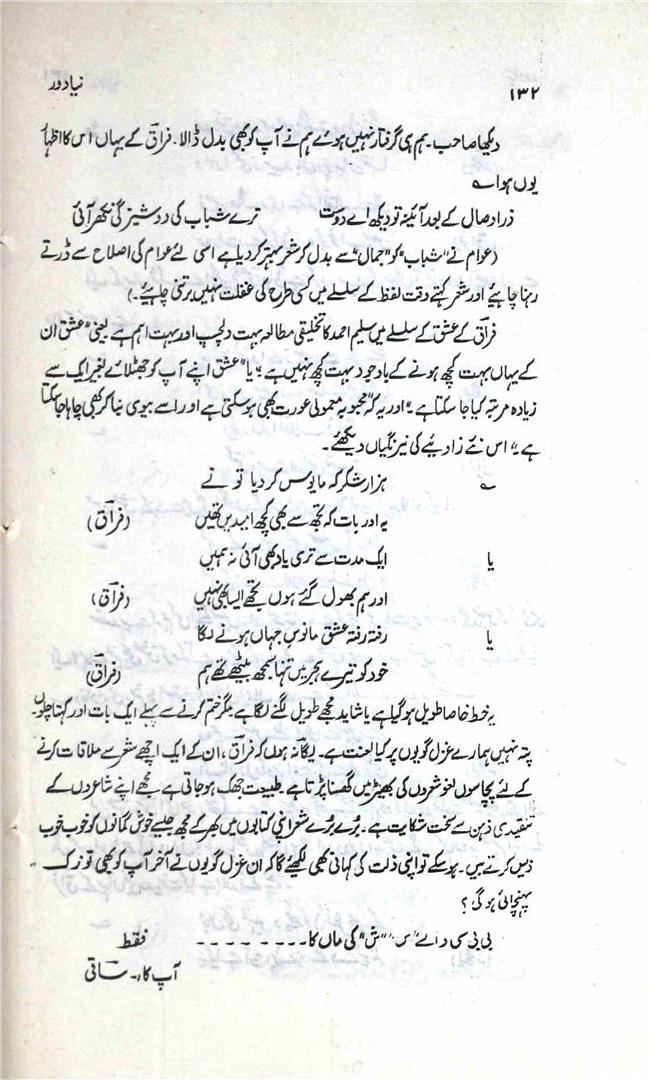 ۱۳۲ نیا دور
دیکھا صاحب۔ ہم ہی گرفتار نہیں ہوئے ہم نے آپ کو بھی بدل ڈالا۔ فراق کے یہاں اس کا اظہار
یوں ہوا ؎
ذرا وصال کے بعد آئینہ تو دیکھ اے دوست ترے شباب کی دوشیزگی نکھر آئی
(عوام نے "شباب" کو "جمال" سے بدل کر شعر بہتر کر دیا ہے اسی لئے عوام کی اصلاح سے ڈرتے
رہنا چاہیئے اور شعر کہتے وقت لفظ کے سلسلے میں کسی طرح کی غفلت نہیں برتنی چاہیئے۔)
فراق کے عشق کے سلسلے میں سلیم احمد کا تخلیقی مطالعہ بہت دلچسپ اور بہت اہم ہے یعنی "عشق ان
کے یہاں بہت کچھ ہونے کے باوجود بہت کچھ نہیں ہے" یا "عشق اپنے آپ کو جھٹلائے بغیر ایک سے
زیادہ مرتبہ کیا جا سکتا ہے" اور یہ کہ "محبوبہ معمولی عورت بھی ہو سکتی ہے اور اسے بیوی بنا کر بھی چاہا جا سکتا
ہے" اس نئے زاویئے کی نیرنگیاں دیکھئے۔
؎ ہزار شکر کہ مایوس کر دیا تو نے
یہ اور بات کہ تجھ سے بھی کچھ امیدیں تھیں (فراق)
یا ایک مدت سے تری یاد بھی آئی نہ ہمیں
اور ہم بھول گئے ہوں تجھے ایسا بھی نہیں (فراق)
یا رفتہ رفتہ عشق مانوسِ جہاں ہونے لگا
خود کو تیرے ہجر میں تنہا سمجھ بیٹھے تھے ہم (فراق)
یہ خط خاصا طویل ہو گیا ہے یا شاید مجھے طویل لگنے لگا ہے مگر ختم کرنے سے پہلے ایک بات اور کہتا چلوں۔
پتہ نہیں ہمارے غزل گویوں پر کیا لعنت ہے۔ یگانہ ہوں کہ فراق، ان کے ایک اچھے شعر سے ملاقات کرنے
کے لئے پچاسوں لغو شعروں کی بھیڑ میں گھسنا پڑتا ہے۔ طبیعت جھک ہو جاتی ہے مجھے اپنے شاعروں کے
تنقیدی ذہن سے سخت شکایت ہے۔ بڑے بڑے شعر اپنی کتابوں میں بھر کے مجھ جیسے خوش گمانوں کو خوب خوب
ذلیل کرتے ہیں۔ ہو سکے تو اپنی ذلت کی کہانی بھی لکھیئے گا کہ ان غزل گویوں نے آخر آپ کو بھی تو زک
پہنچائی ہو گی؟
بی بی سی دراے "س" "ش" کی ماں کا ۔۔۔۔۔۔۔۔ فقط
آپ کا۔ ساقی